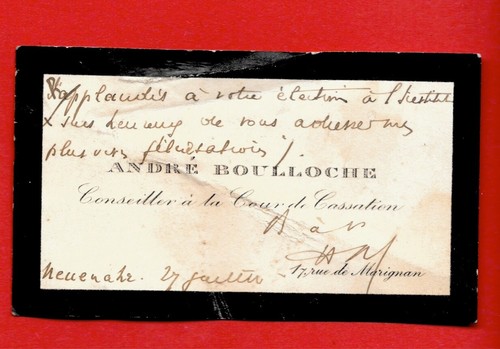 J'applaudis à votre élection à l'Institut
& suis heureux de vous adresser mes
plus vives félicitations
ANDRÉ BOULLOCHE
Conseiller à la Cour de Cassation
17, rue de Marignan
27 juillet